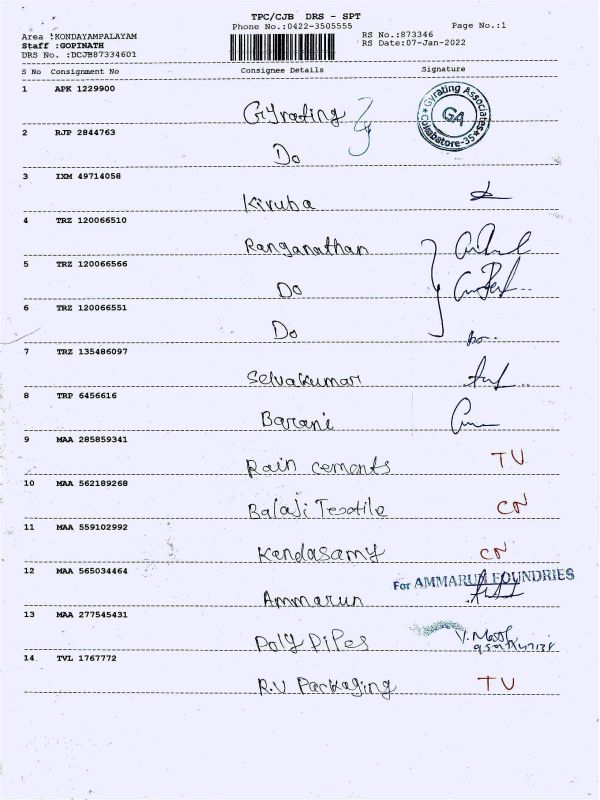 TPC/CJB DRS - SPT
Phone No.:0422-3505555 Page No.:1
Area :KONDAYAMPALAYAM RS No.:873346
Staff :GOPINATH RS Date:07-Jan-2022
DRS No. :DCJB87334601
S No Consignment No Consignee Details Signature
1 APK 1229900
Gyrating
Gyrating Associates
GA
Coimbatore-35
2 RJP 2844763
Do
3 IXM 49714058
Kiruba
4 TRZ 120066510
Ranganathan
5 TRZ 120066566
Do
6 TRZ 120066551
Do
7 TRZ 135486097
Selvakumar
8 TRP 6456616
Barani
9 MAA 285859341
Rain cements TU
10 MAA 562189268
Balaji Textile CN
11 MAA 559102992
Kandasamy CN
12 MAA 565034464
For AMMARUN FOUNDRIES
Ammarun
13 MAA 277545431
Poly Pipes
14 TVL 1767772
R.V Packaging TU